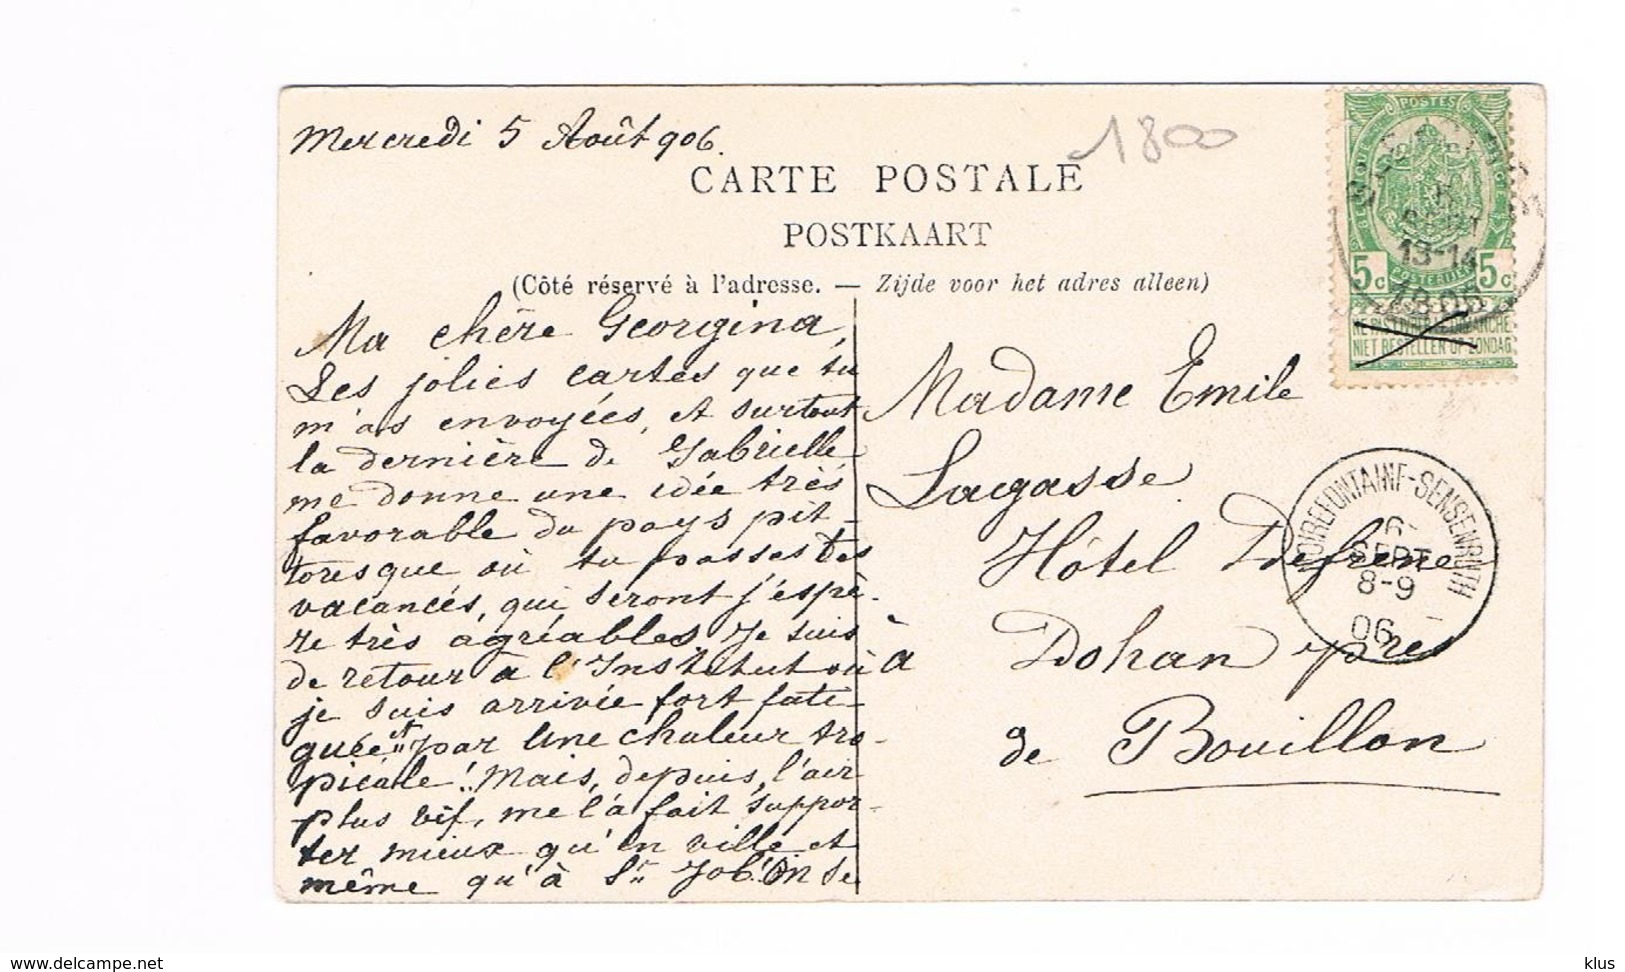 Mercredi 5 Août 906.
1800
CARTE POSTALE
POSTKAART
(Côté réservé à l'adresse. — Zijde voor het adres alleen)
Ma chère Georgina,
Les jolies cartes que tu
m'as envoyées, et surtout
la dernière de Gabrielle
me donne une idée très
favorable du pays pit-
toresque où tu passes tes
vacances, qui seront j'espè-
re très agréables. Je suis
de retour à l'Institut où
je suis arrivée fort fati-
guée et par une chaleur tro-
picale! Mais, depuis, l'air
plus vif, me l'a fait suppor-
ter mieux qu'en ville et
même qu'à St Job. On se
Madame Emile
Lagasse
Hôtel Defrene
à Dohan près
de Bouillon
POSTES
5c POSTERIJEN 5c
NE PAS LIVRER LE DIMANCHE
NIET BESTELLEN OP ZONDAG
13-14
NOIREFONTAINE-SENSENRUTH
6
SEPT
8-9
06
delcampe.net
klus